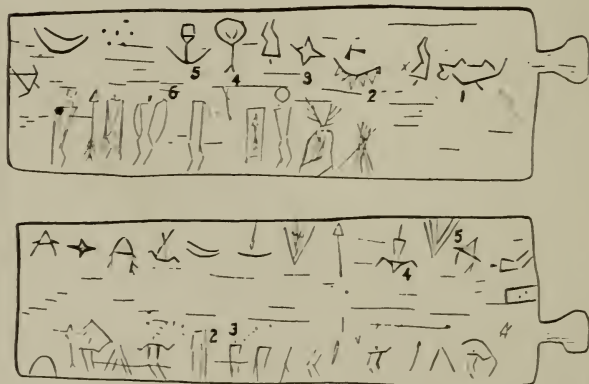 5 4 3 2 1
6
5
4
2 3